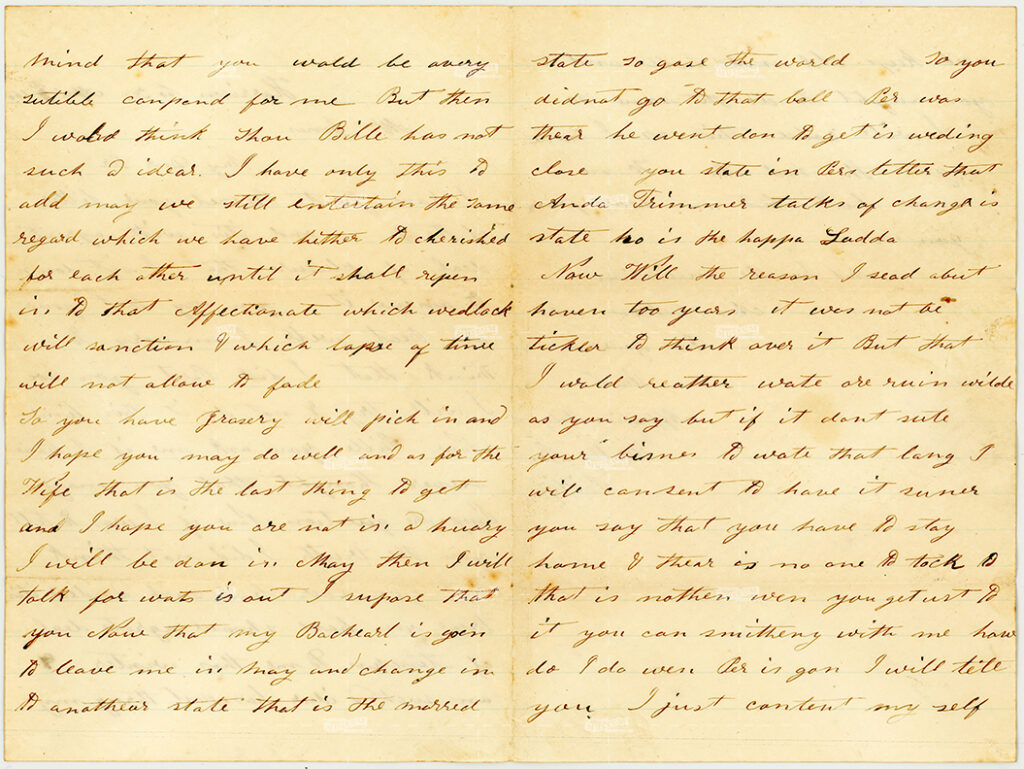 mind that you wold be avery
sutible conpend for me But then
I wold think Thou Bille has not
such a idear. I have only this to
add may we still entertain the same
regard which we have hither to cherished
for each other until it shall ripen
in to that Affectionate which wedlock
will sanction & which lapse of time
will not allow to fade
So you have Grosery will pick in and
I hope you may do well and as for the
Wife that is the last thing to get
and I hope you are not in a huary
I will be don in May then I will
talk for wats is out I supose that
you Now that my Bachearl is goin
to leave me in May and change in
to anathear state that is the marred
state so gose the world So you
didnat go to that ball Per was
thear he went don to get is weding
close you state in Pers letter that
Anda Trimmer talks of change is
state ho is the happa Ladda
Now Will the reason I sead abut
haven too years it was not be
tickler to think over it But that
I wold reather wate are ruin wilde
as you say but if it dont sute
your bisnes to wate that lang I
will consent to have it suner
you say that you have to stay
home & thear is no one to tock to
that is nothen wen you get ust to
it you can smitheny with me how
do I do wen Per is gon I will tell
you I just content my self